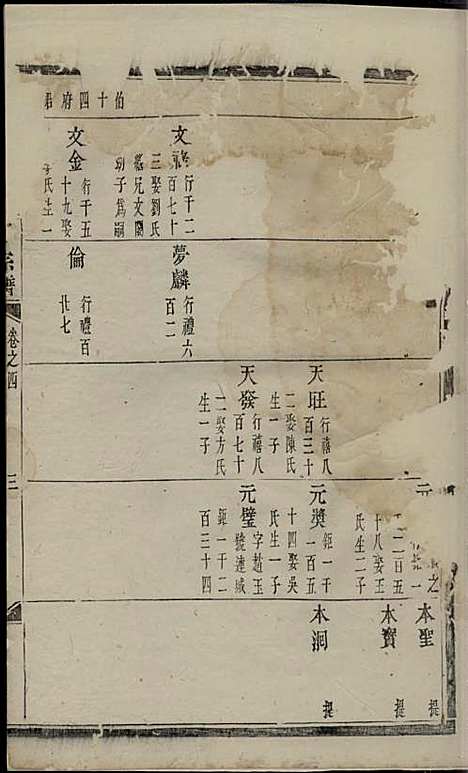 伯十四府君
文
行千二
百七十
三娶劉氏
兄文
幼子為嗣
文金
行千五
十九娶
氏生一
夢麟
行禮六
百二二
倫
行禮百
廿七
天旺
行禧八
百三十
二娶陳氏
生一子
天發
行禧八
百七十
二娶方氏
生一子
元
之
一
二百五
十八娶王
氏生二子
元獎
鉅一千
一百五
十四娶吳
氏生一子
元璧
字趙玉
號連城
鉅一千二
百三十四
本聖
提
本寶
提
本洞
提
宗譜
卷之四
三